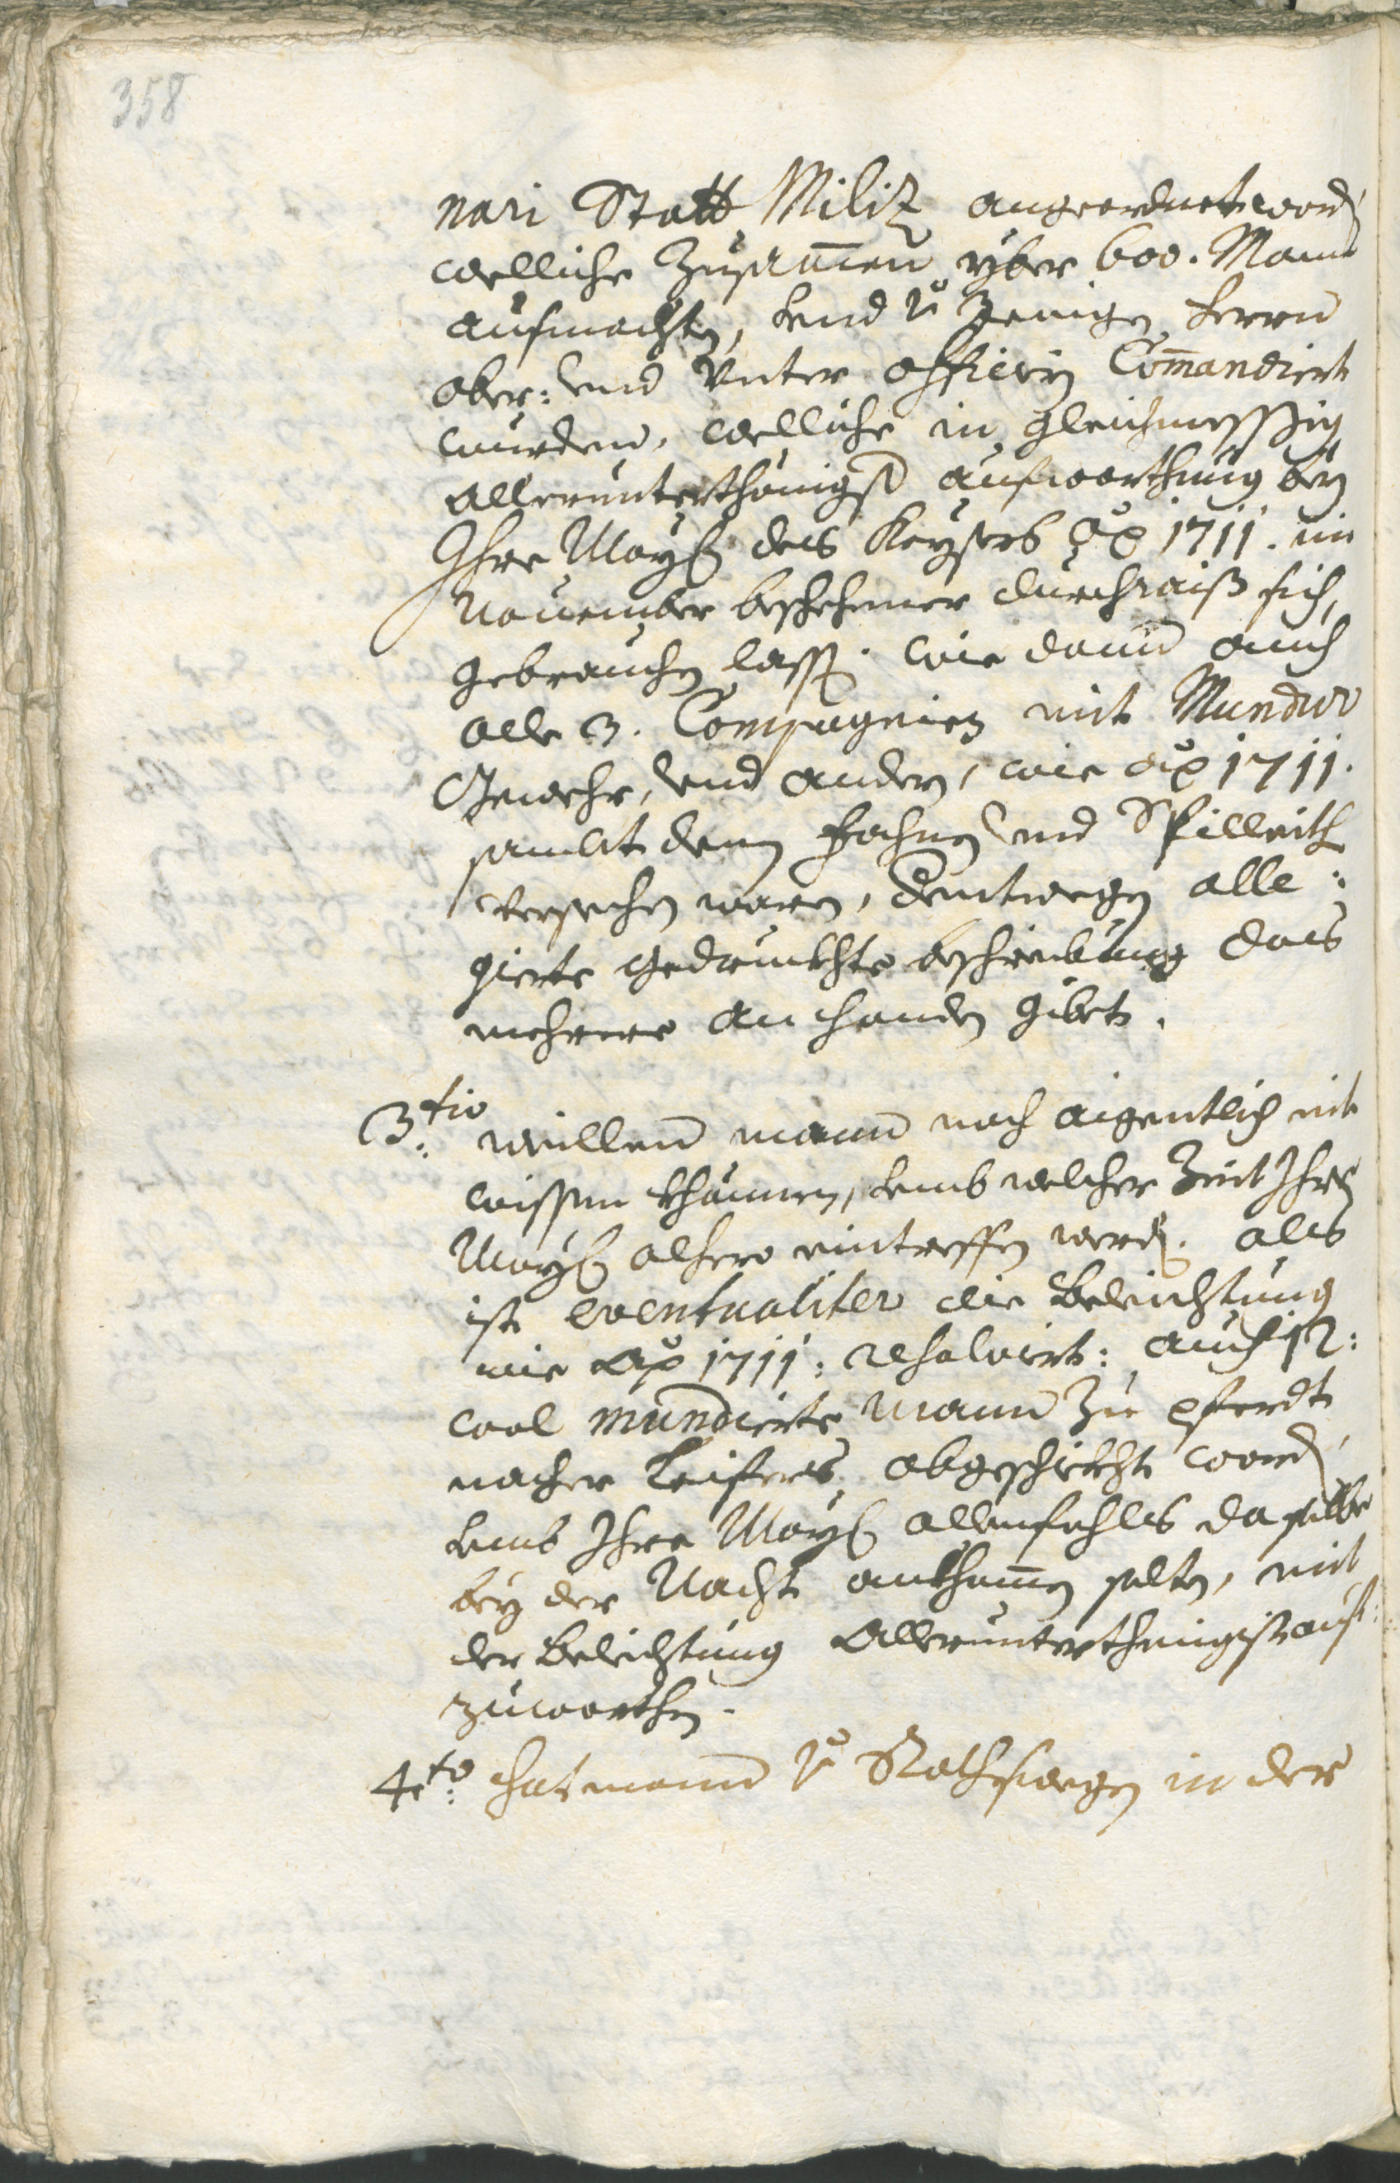 358
nari Statt Militz angeordnet word
welliche Zusamen yber 600. Mann
aufmachten, vnd v Jenigen Herrn
ober: vnd Vnter officirn Comandiert
wurden, welliche in gleichmessßig
allerunterthänigst aufwarthung bey
Ihre Mayt des Keysers Ao 1711. im
November beschehener durchraiß sich
gebrauchen lassen. wie dann auch
alle 3. Compagnien mit Mundur
Gewehr, vnd andern, wie ao 1711.
sambt denen Fahnen vnd Spilleith
versechen waren, dentwegen alle:
gierte gedruckhte beschreibung das
mehrere an handen gibet.
3.tio weillen mann noch aigentlich nit
wissen khönnen, vmb welcher Zeit Ihre
Mayt alhero eintreffen werden. als
ist eventualiter die Beleichtung
wie Ao 1711: resolviert: auch 12:
wol mundierte Mann zu Pferdt
nacher Leifers abgeschickht word
vmb Ihre Mayt allenfahls da selbe
bey der Nacht ankhomen solten, mit
der Beleichtung Allerunterthenigist auf:
zuwarthen.
4.to hat mann v Raths wegen in der